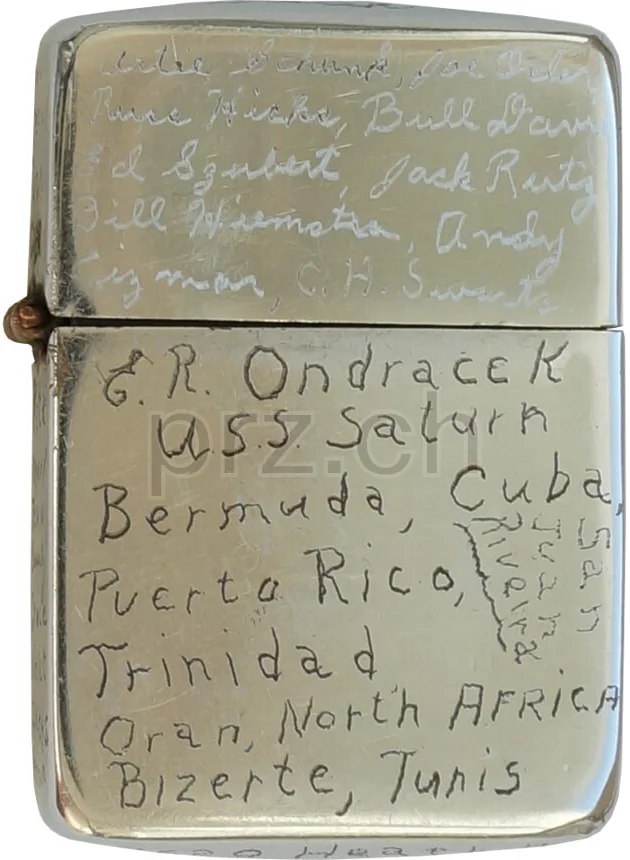 Schunk, Joe
Russ Hicks, Bull Davi
Ed Szubert, Jack Rutz
Bill Hiemstra, Andy
man, C. H. Swartz
E. R. Ondracek
U.S.S. Saturn
Bermuda, Cuba,
San
Juan
Riveira
Puerto Rico,
Trinidad
Oran, North AFRICA
Bizerte, Tunis
prz.ch